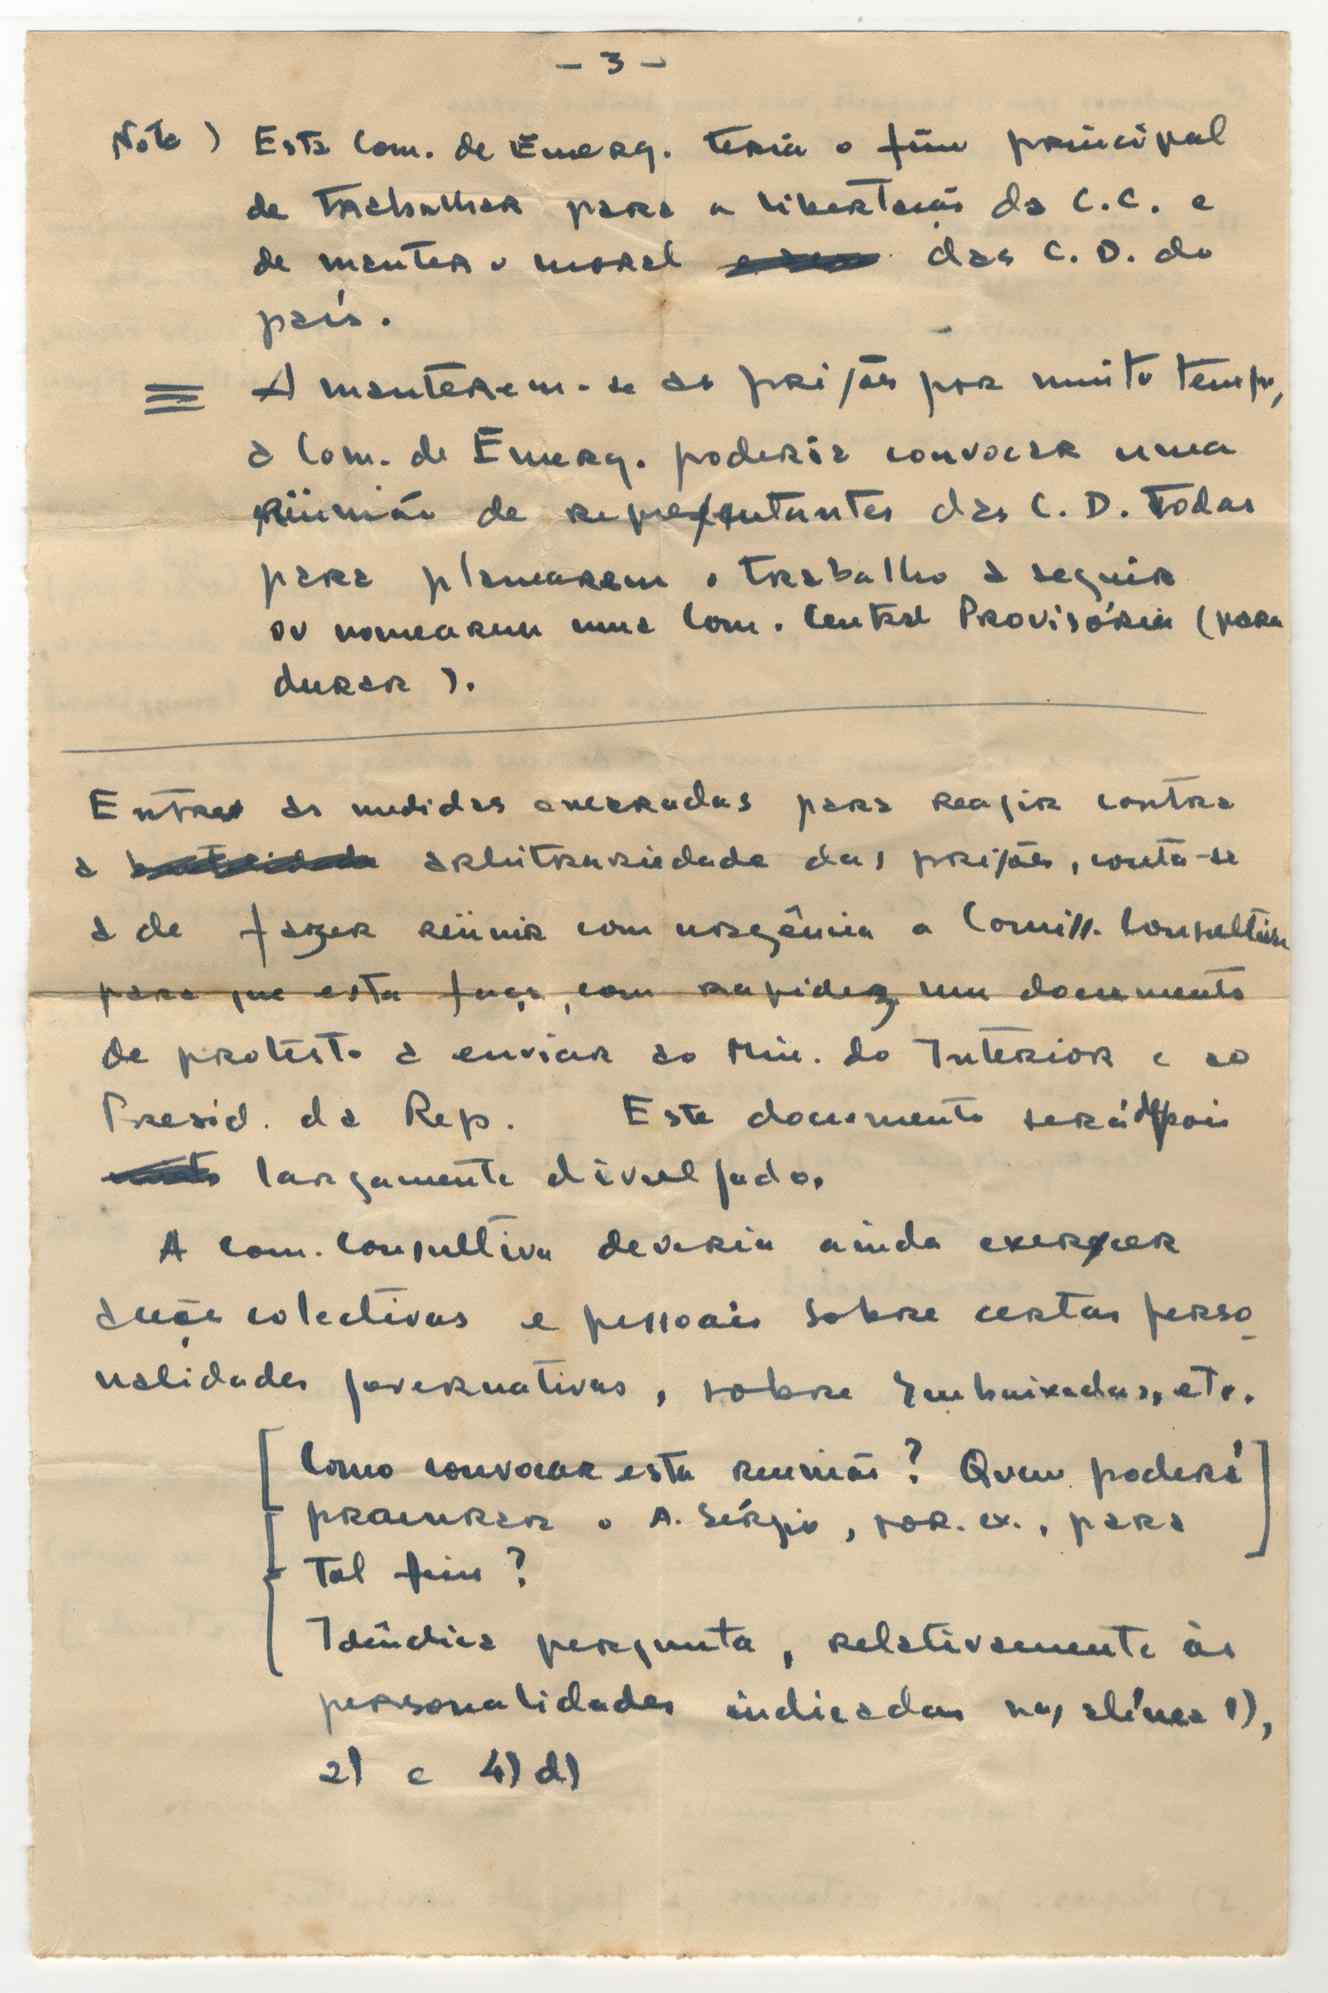 - 3 -
Nota ) Esta Com. de Emerg. teria o fim principal
de trabalhar para a libertação da C.C. e
de manter o moral das C. D. do
país.
A manterem-se as prisões por muito tempo,
a Com. de Emerg. poderia convocar uma
reünião de representantes das C. D. todas
para planearem o trabalho a seguir
ou nomearem uma Com. Central Provisória (para
durar ).
Entre as medidas encaradas para reagir contra
a arbitrariedade das prisões, conta-se
a de fazer reünir com urgência a Comiss. Consultiva
para que esta faça, com rapidez, um documento
de protesto a enviar ao Min. do Interior e ao
Presid. da Rep. Este documento será depois
largamente divulgado.
A com. Consultiva deveria ainda exercer
acções colectivas e pessoais sobre certas perso-
nalidades governativas, sobre Embaixadas, etc.
[ Como convocar esta reunião? Quem poderá
procurar o A. Sérgio, por. ex., para
tal fim? ]
Idêndica pergunta, relativamente às
personalidades indicadas nas alínea 1),
2) e 4) d)